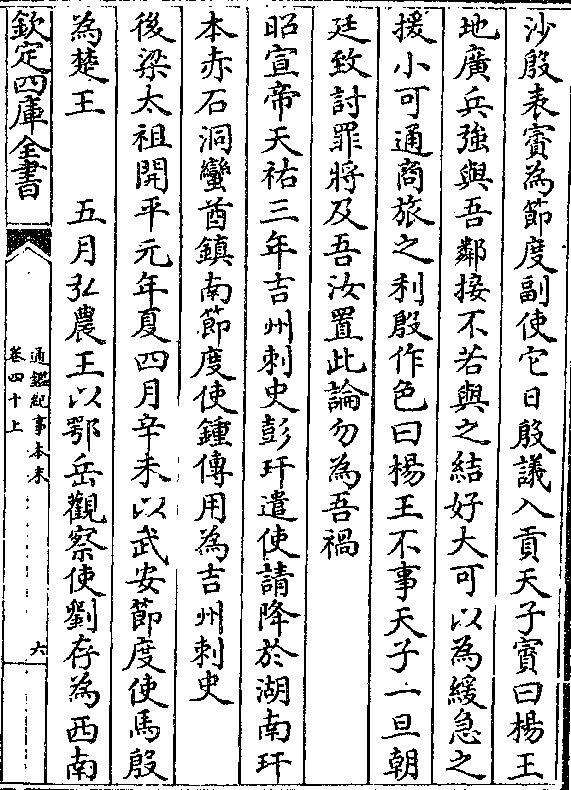 沙殷表賓為節度副使它日殷議入貢天子賓曰楊王
地廣兵強與吾鄰接不若與之結好大可以為緩急之
援小可通商旅之利殷作色曰楊王不事天子一旦朝
廷致討罪將及吾汝置此論勿為吾禍
昭宣帝天祐三年吉州刺史彭玕遣使請降於湖南玕
本赤石洞蠻酋鎮南節度使鍾傳用為吉州刺史
後梁太祖開平元年夏四月辛未以武安節度使馬殷
為楚王　　五月弘農王以鄂岳觀察使劉存為西南
欽定四庫全書
通鑑紀事本末
卷四十上
六